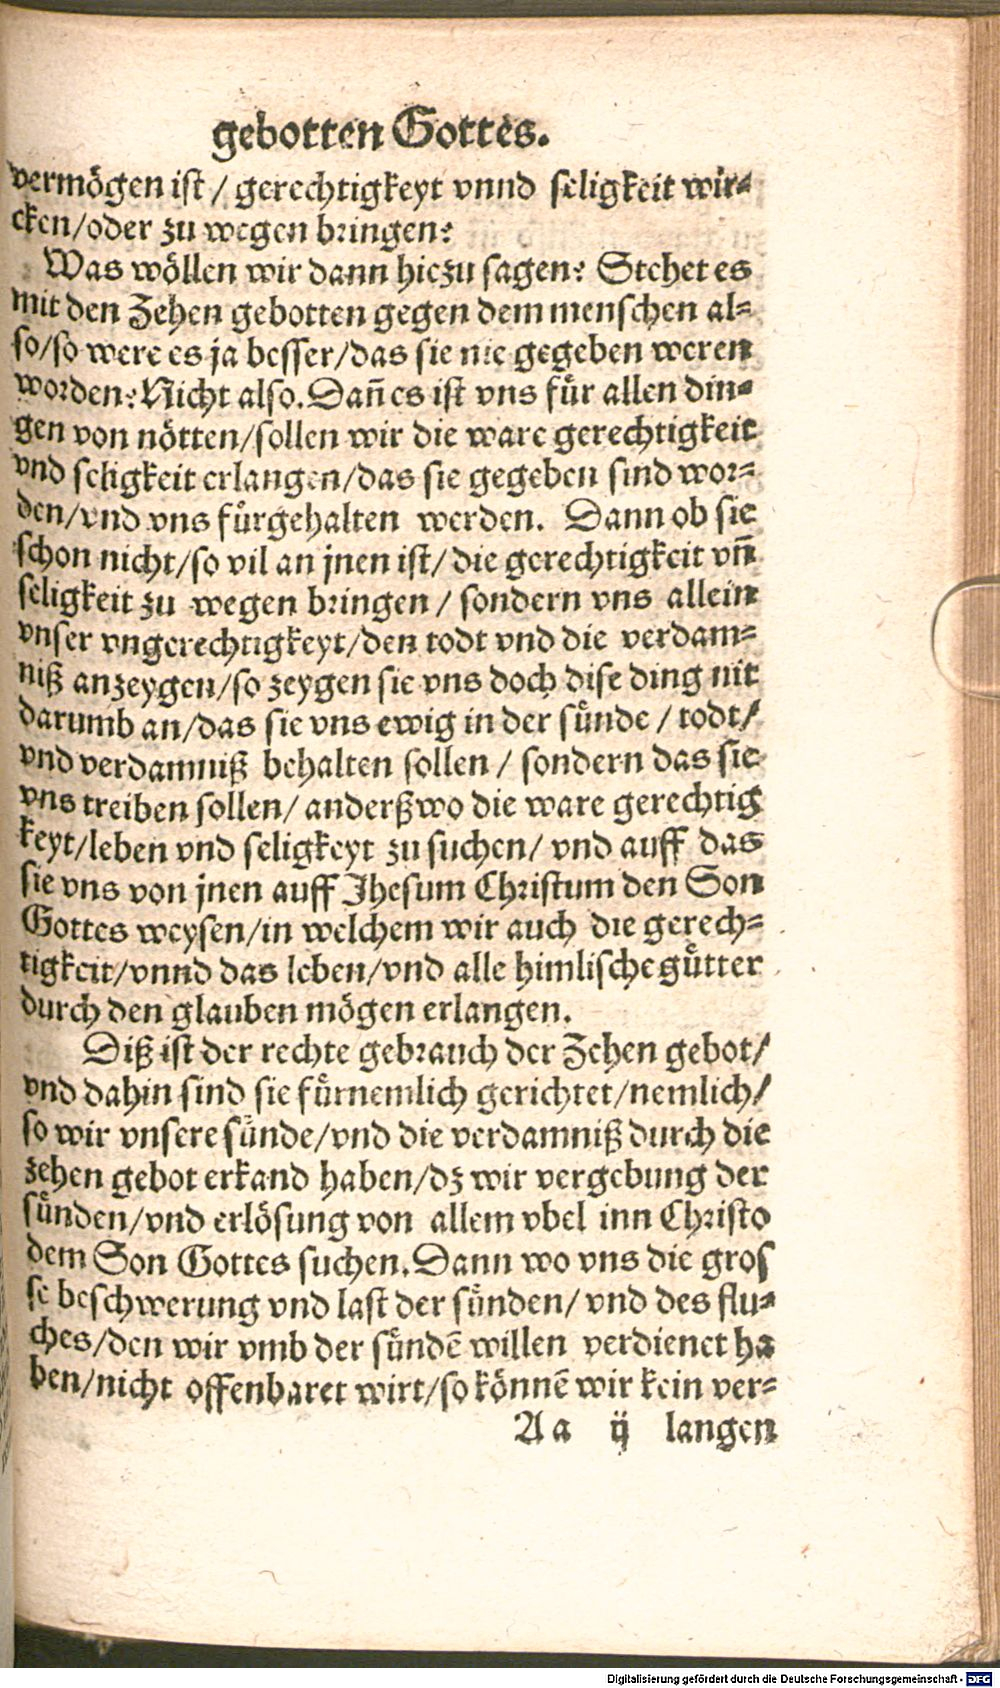 gebotten Gottes.
vermögen ist / gerechtigkeyt vnnd seligkeit wir-
cken/oder zu wegen bringen?
Was wöllen wir dann hiezu sagen? Stehet es
mit den Zehen gebotten gegen dem menschen al-
so/so were es ja besser/das sie nie gegeben weren
worden? Nicht also. Dañ es ist vns für allen din-
gen von nötten/sollen wir die ware gerechtigkeit
vnd seligkeit erlangen/das sie gegeben sind wor-
den/vnd vns fürgehalten werden. Dann ob sie
schon nicht/so vil an jnen ist/die gerechtigkeit vñ
seligkeit zu wegen bringen / sondern vns allein
vnser vngerechtigkeyt/den todt vnd die verdam-
niß anzeygen/so zeygen sie vns doch dise ding nit
darumb an/das sie vns ewig in der sünde / todt/
vnd verdamniß behalten sollen / sondern das sie
vns treiben sollen/ anderßwo die ware gerechtig
keyt/leben vnd seligkeyt zu suchen/ vnd auff das
sie vns von jnen auff Jhesum Christum den Son
Gottes weysen/in welchem wir auch die gerech-
tigkeit/vnnd das leben/vnd alle himlische gütter
durch den glauben mögen erlangen.
Diß ist der rechte gebrauch der Zehen gebot/
vnd dahin sind sie fürnemlich gerichtet/nemlich/
so wir vnsere sünde/vnd die verdamniß durch die
zehen gebot erkand haben/dz wir vergebung der
sünden/vnd erlösung von allem vbel inn Christo
dem Son Gottes suchen. Dann wo vns die gros
se beschwerung vnd last der sünden/ vnd des flu-
ches/den wir vmb der sündē willen verdienet ha
ben/nicht offenbaret wirt/so könnē wir kein ver-
Aa ij langen
Digitalisierung gefördert durch die Deutsche Forschungsgemeinschaft - DFG